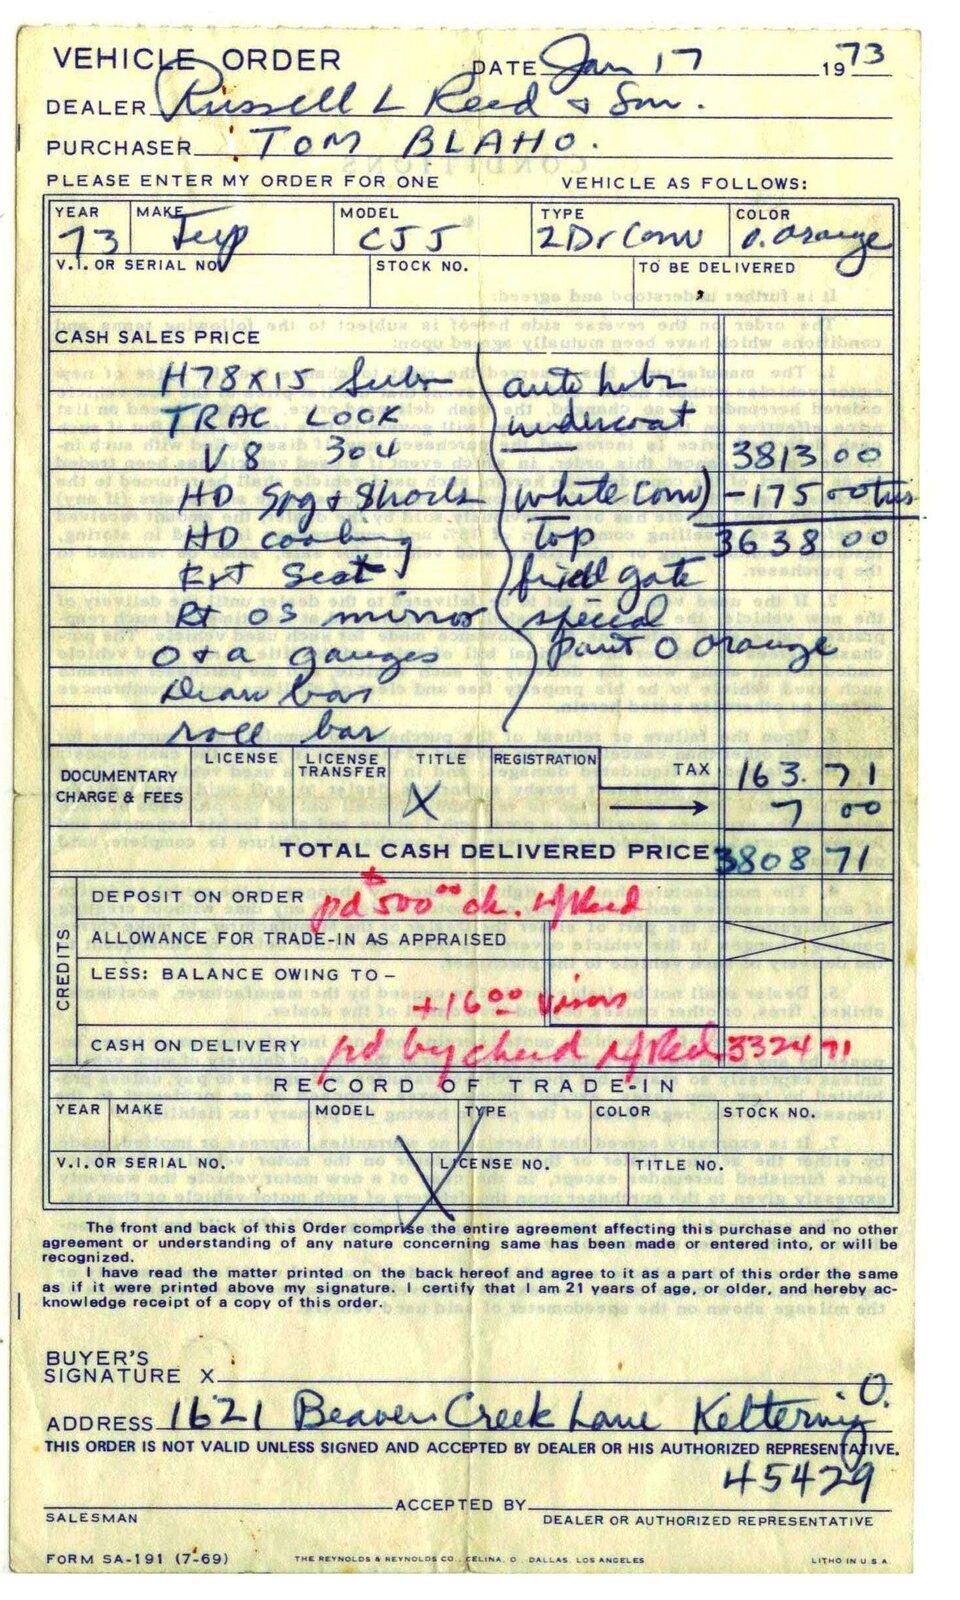 VEHICLE ORDER DATE Jan 17 1973
DEALER Russell L Reed & Son.
PURCHASER TOM BLAHO.
PLEASE ENTER MY ORDER FOR ONE VEHICLE AS FOLLOWS:
YEAR MAKE MODEL TYPE COLOR
73 Jeep CJ5 2Dr Conv O. Orange
V.I. OR SERIAL NO. STOCK NO. TO BE DELIVERED
CASH SALES PRICE
H78X15 Subn auto hubs
TRAC LOCK undercoat
V8 304 3813 00
HD Spg & Shocks (White Conv) -175 00
HD cooling Top 3638 00
Rr Seat fixed gate
Rt OS mirror special
O & a gauges paint O Orange
Draw bar
roll bar
DOCUMENTARY CHARGE & FEES LICENSE LICENSE TRANSFER TITLE X REGISTRATION TAX 163.71
7 00
TOTAL CASH DELIVERED PRICE 3808 71
CREDITS
DEPOSIT ON ORDER pd 500 00 ck. Reed
ALLOWANCE FOR TRADE-IN AS APPRAISED
LESS: BALANCE OWING TO –
+16 00 visors
CASH ON DELIVERY pd by check Reed 3324 71
RECORD OF TRADE-IN
YEAR MAKE MODEL TYPE COLOR STOCK NO.
V.I. OR SERIAL NO. LICENSE NO. TITLE NO.
The front and back of this Order comprise the entire agreement affecting this purchase and no other
agreement or understanding of any nature concerning same has been made or entered into, or will be
recognized.
I have read the matter printed on the back hereof and agree to it as a part of this order the same
as if it were printed above my signature. I certify that I am 21 years of age, or older, and hereby ac-
knowledge receipt of a copy of this order.
BUYER'S
SIGNATURE X
ADDRESS 1621 Beaver Creek Lane Kettering O.
THIS ORDER IS NOT VALID UNLESS SIGNED AND ACCEPTED BY DEALER OR HIS AUTHORIZED REPRESENTATIVE.
45429
ACCEPTED BY
SALESMAN DEALER OR AUTHORIZED REPRESENTATIVE
FORM SA-191 (7-69) THE REYNOLDS & REYNOLDS CO., CELINA, O. DALLAS, LOS ANGELES LITHO IN U.S.A.